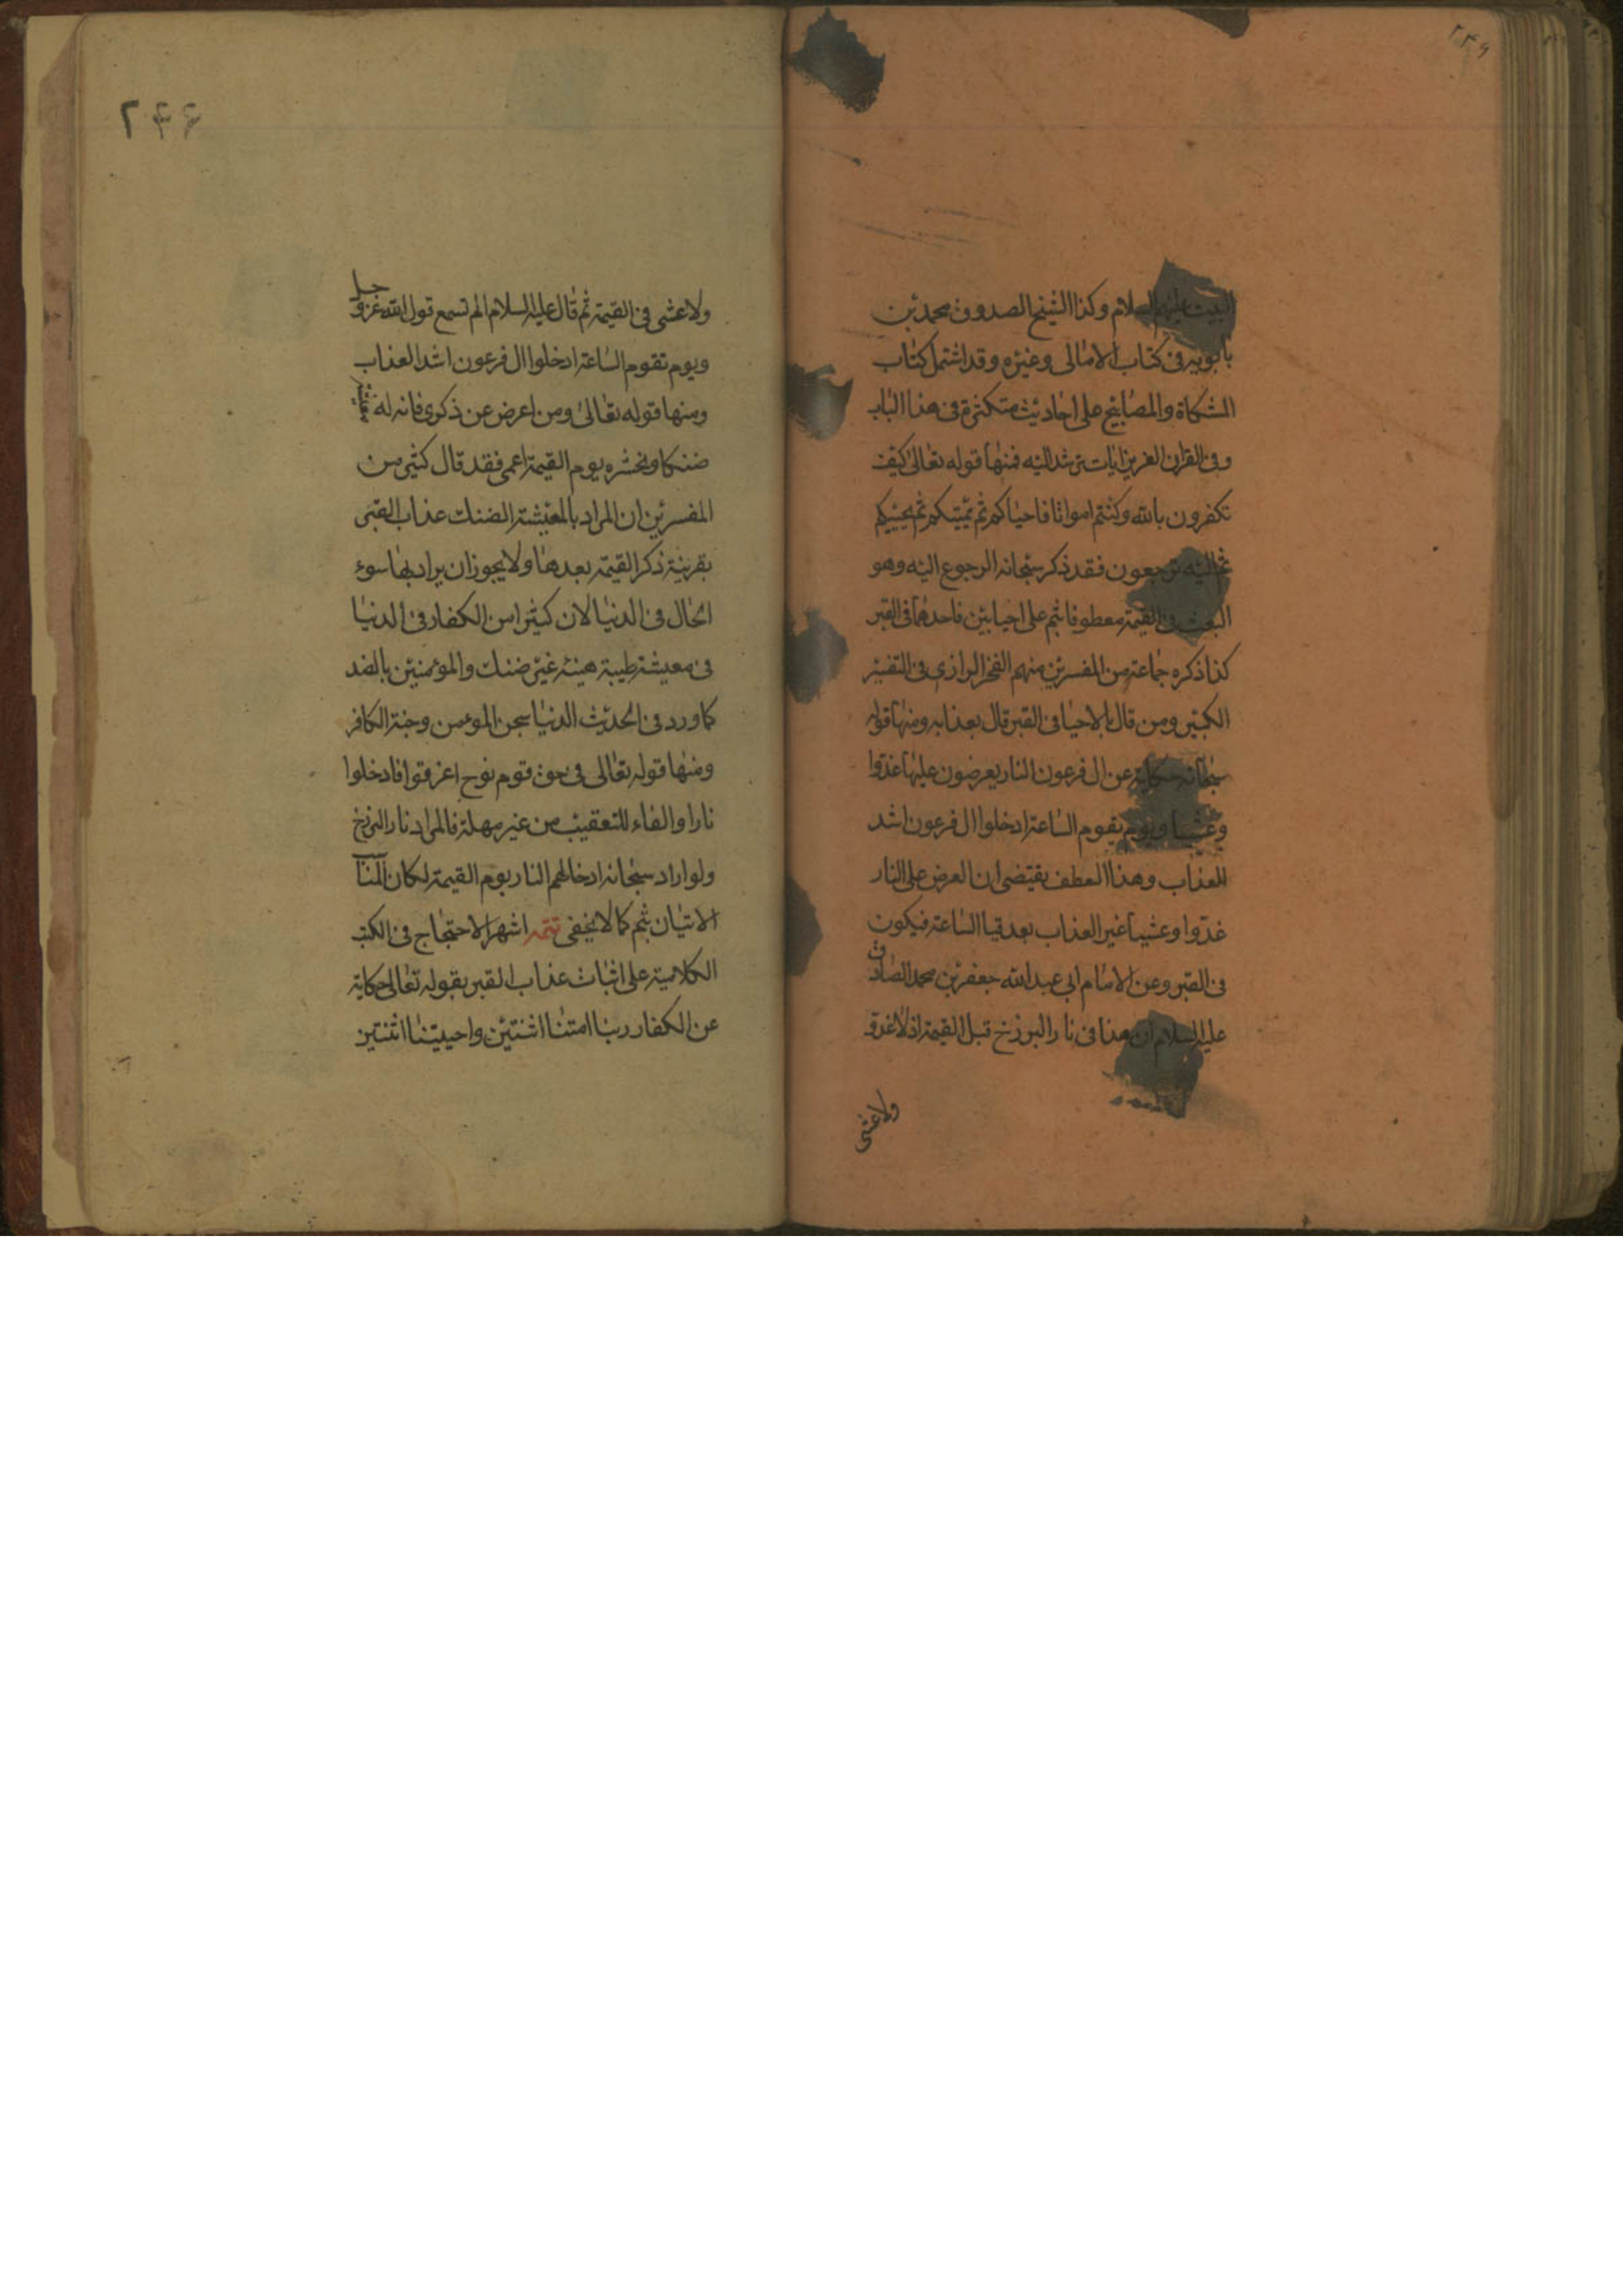 ٢٤٩
البيت عليهم السلام وكذا الشيخ الصدوق محمد بن
بابويه فى كتاب الامالى وغيره وقد اشتمل كتاب
المشكاة والمصابيح على احاديث متكثرة فى هذا الباب
وفى القران العزيز ايات ترشد اليه فمنها قوله تعالى كيف
تكفرون بالله وكنتم امواتا فاحياكم ثم يميتكم ثم يحييكم
ثم اليه ترجعون فقد ذكر سبحانه الرجوع اليه وهو
البعث فى القيمة معطوفا بثم على احيايين فاحدهما فى القبر
كذا ذكره جماعة من المفسرين منهم الفخر الرازى فى التفسير
الكبير ومن قال بالاحيا فى القبر قال بعذابه ومنها قوله
سبحانه حكاية عن ال فرعون النار يعرضون عليها غدوا
وعشيا ويوم يقوم الساعة ادخلوا ال فرعون اشد
العذاب وهذا العطف يقتضى ان العرض على النار
غدوا وعشيا غير العذاب بعد قيا الساعة فيكون
فى القبر وعن الامام ابى عبد الله جعفر بن محمد الصادق
عليه السلام ان هذا فى نار البرزخ قبل القيمة اذ لا غدو
ولا عشى
٢٤٦
ولا عشى فى القيمة ثم قال عليه السلام الم تسمع قول الله عز وجل
ويوم تقوم الساعة ادخلوا ال فرعون اشد العذاب
ومنها قوله تعالى ومن اعرض عن ذكرى فانه له معيشة
ضنكا ونحشره يوم القيمة اعمى فقد قال كثير من
المفسرين ان المراد بالمعيشة الضنك عذاب القبر
بقرينة ذكر القيمة بعدها ولا يجوز ان يراد بها سوء
الحال فى الدنيا لان كثيرا من الكفار فى الدنيا
فى معيشة طيبة هنيئة غير ضنك والمؤمنين بالضد
كما ورد فى الحديث الدنيا سجن المومن وجنة الكافر
ومنها قوله تعالى فى حق قوم نوح اغرقوا فادخلوا
نارا والفاء للتعقيب من غير مهلة فالمراد نار البرزخ
ولو اراد سبحانه ادخالهم النار يوم القيمة لكان المناسب
الاتيان بثم كما لا يخفى تتمه اشهر الاحتجاج فى الكتب
الكلامية على اثبات عذاب القبر بقوله تعالى حكاية
عن الكفار ربنا امتنا اثنتين واحييتنا اثنتين